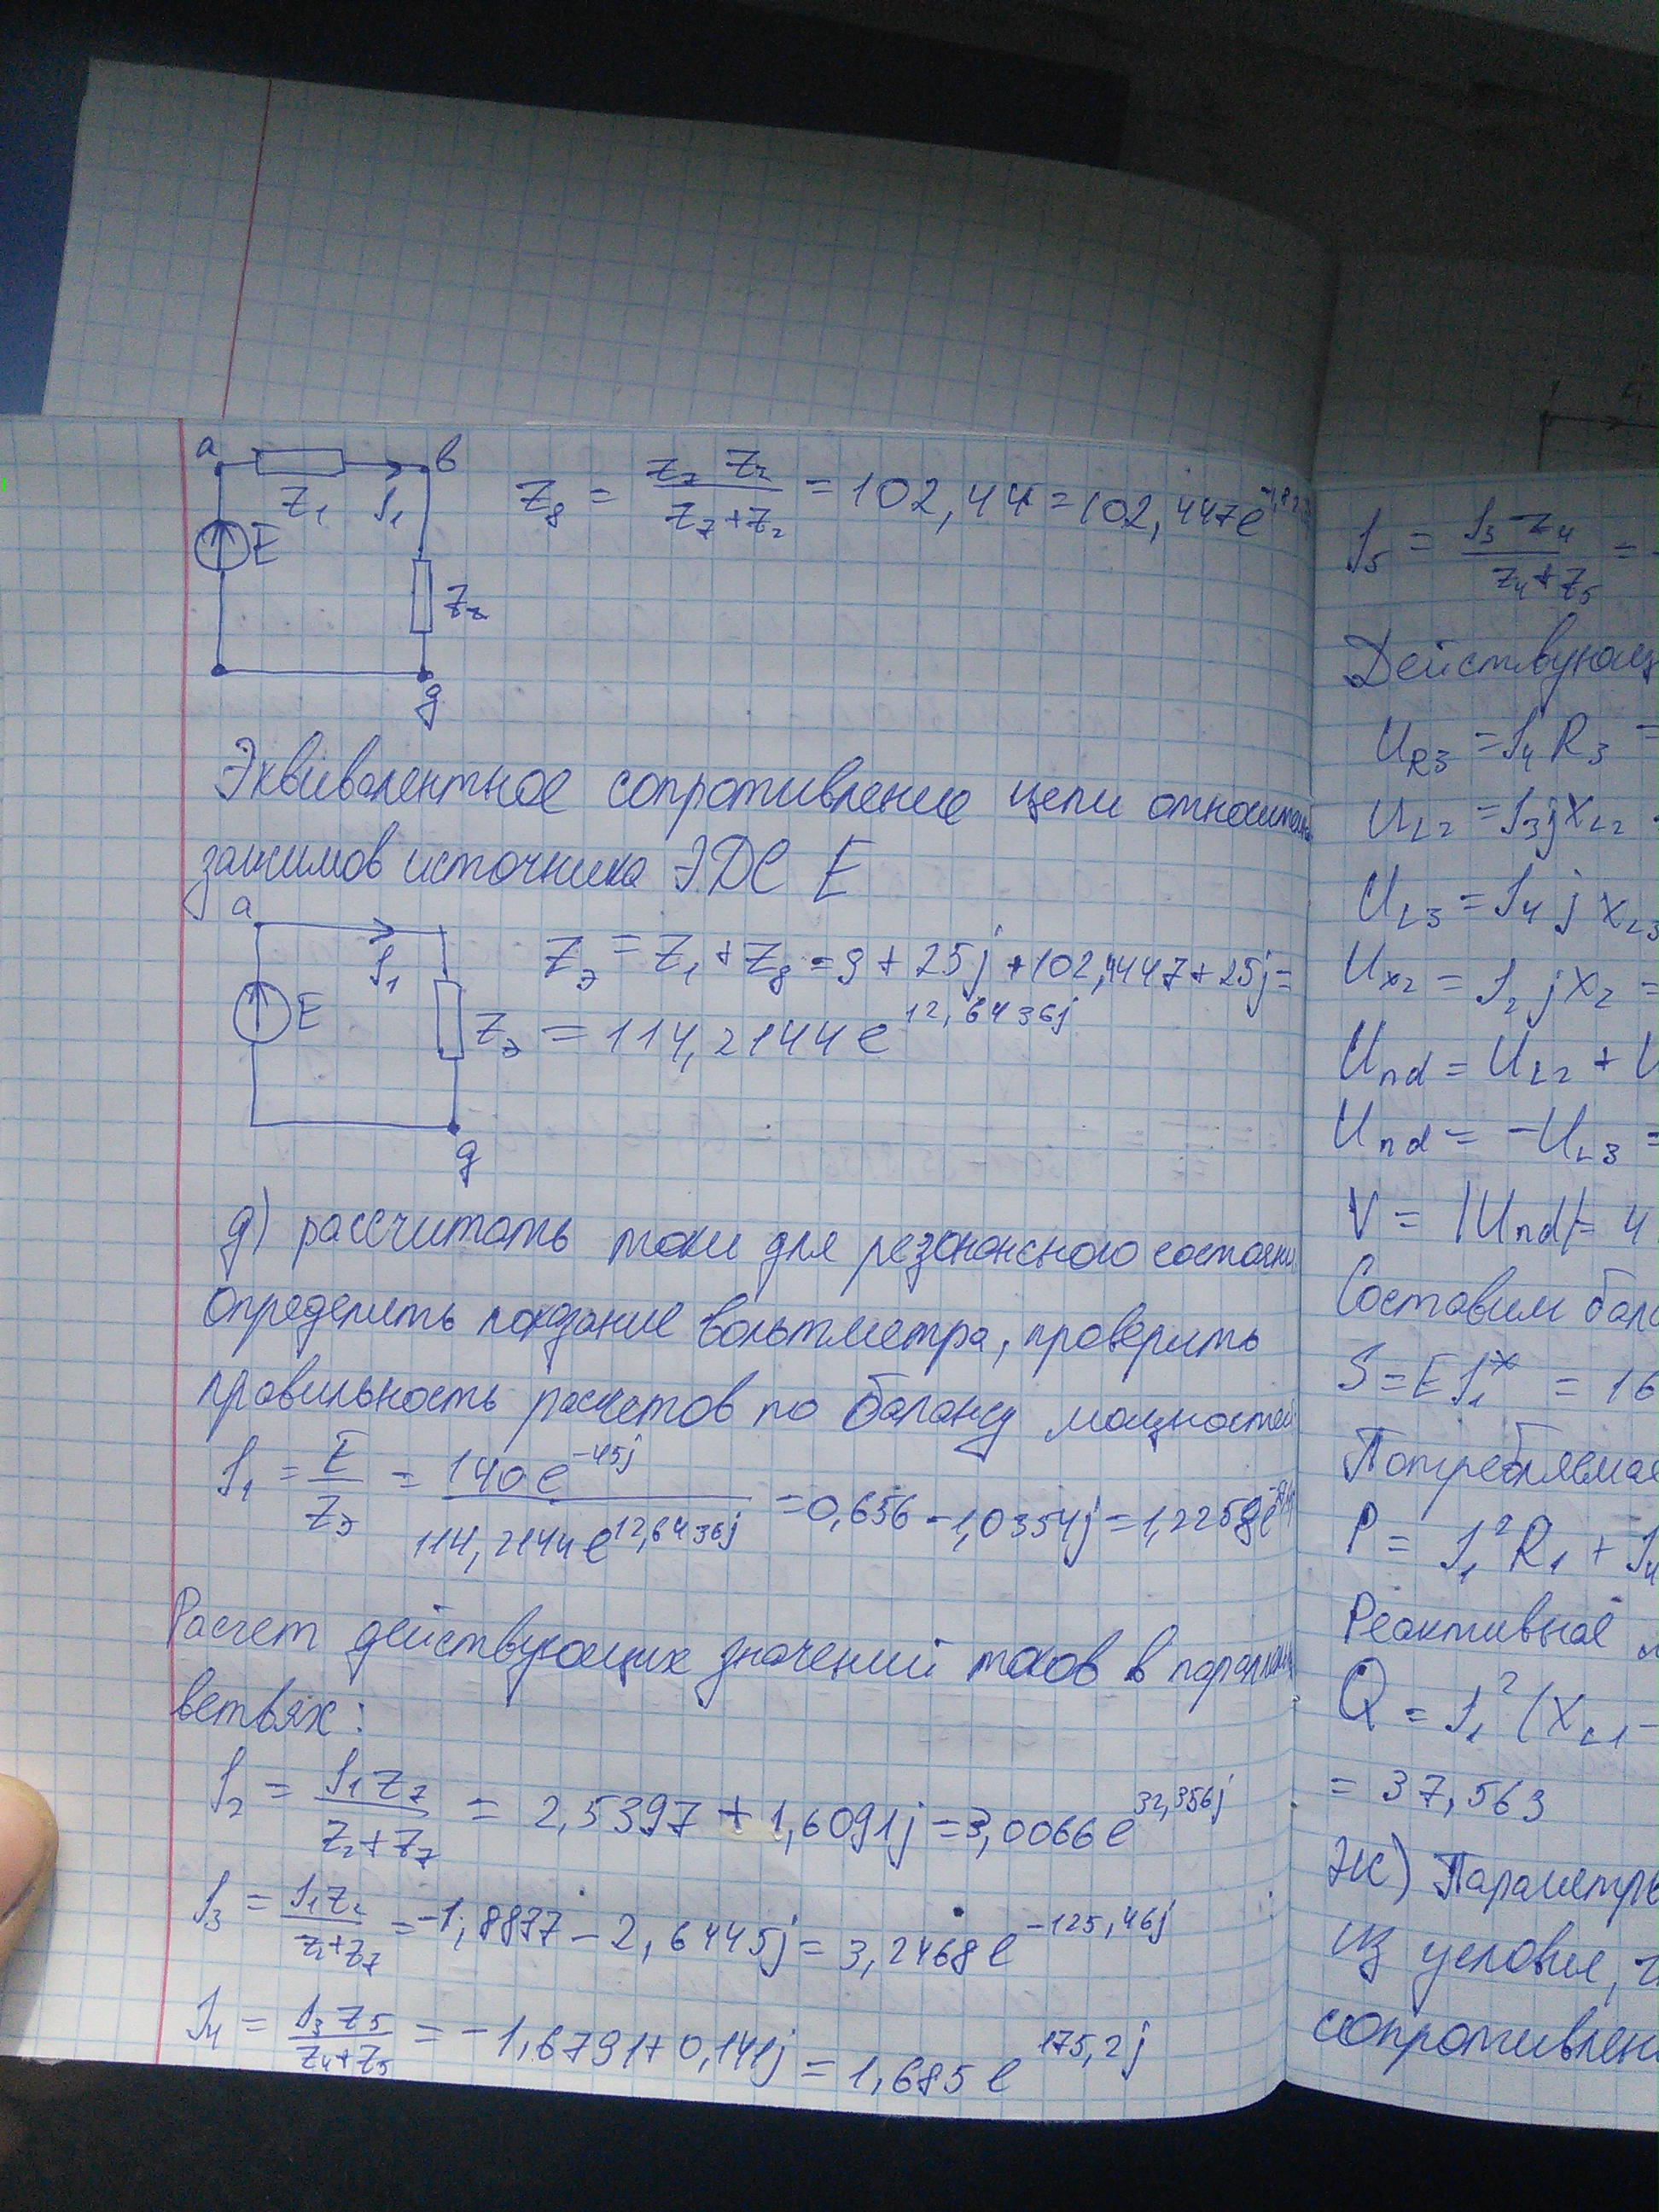 a Z₁ I₁ в
E
Z₈
g
Z₈ = Z₇ Z₂ / (Z₇ + Z₂) = 102,44 = 102,447e
Эквивалентное сопротивление цепи
зажимов источника ЭДС E
a
I₁
E
Zэ
g
Zэ = Z₁ + Z₈ = 9 + 25j + 102,4447 + 25j =
= 114,2144e^12,6436j
д) рассчитать токи для резонансного
Определить показание вольтметра, проверить
правильность расчетов по балансу
I₁ = E / Zэ = 140e^-45j / 114,2144e^12,6436j = 0,656 - 1,0354j = 1,2258e
Расчет действующих значений токов в
ветвях:
I₂ = I₁Z₇ / (Z₂ + Z₇) = 2,5397 + 1,6091j = 3,0066e^32,356j
I₃ = I₁Z₂ / (Z₂ + Z₇) = -1,8837 - 2,6445j = 3,2468e^-125,46j
I₄ = I₃Z₅ / (Z₄ + Z₅) = -1,6791 + 0,141j = 1,685e^175,2j
I₅ = I₃ Z₄ / (Z₄ + Z₅) =
U_R3 = I₄ R₃ =
U_L2 = I₃jX_L2
U_L3 = I₄ j X_L3
U_x2 = I₂ jX₂ =
U_nd = U_L2 +
U_nd = -U_L3 =
V = |U_nd| = 4
Составим
S = EI₁* = 16
P = I₁²R₁ + I₄
Q = I₁²(X_L1 -
= 37,563
ж)
из условия,